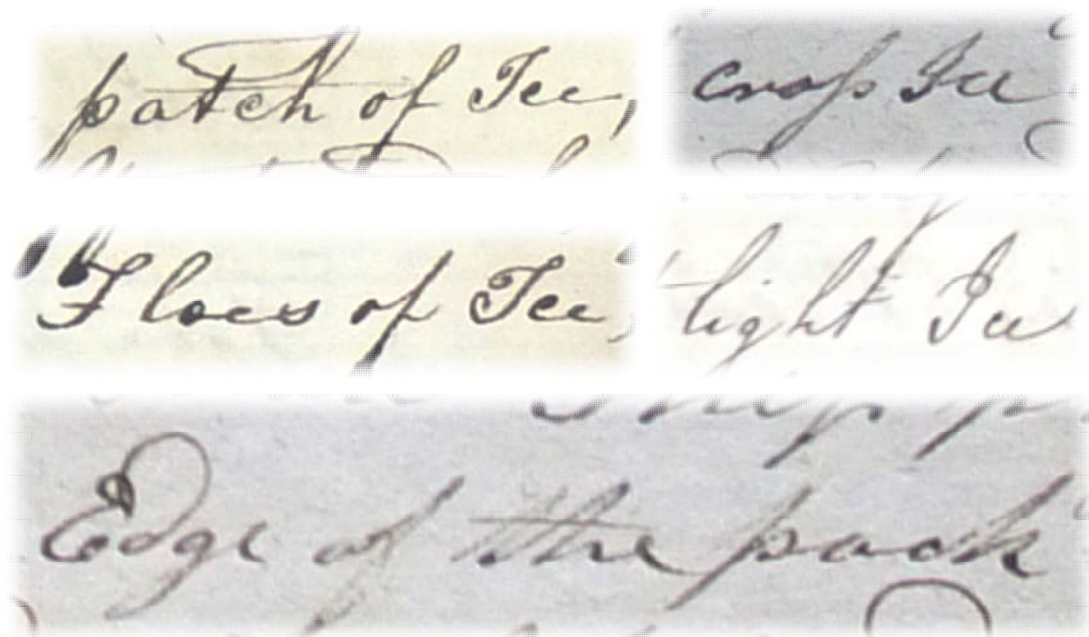 patch of Ice,
cross Ice
Floes of Ice,
light Ice
Edge of the pack